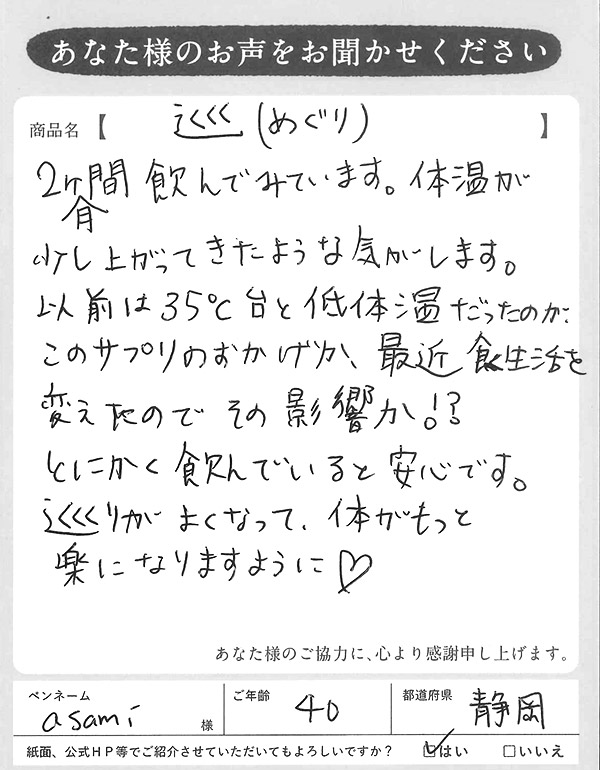 あなた様のお声をお聞かせください
商品名【 巡(めぐり) 】
2ヶ月間 飲んでみています。体温が
少し上がってきたような気がします。
以前は35℃台と低体温だったのが、
このサプリのおかげか、最近食生活を
変えたのでその影響か!?
とにかく飲んでいると安心です。
巡りがよくなって、体がもっと
楽になりますように♡
あなた様のご協力に、心より感謝申し上げます。
ペンネーム asami 様 ご年齢 40 都道府県 静岡
紙面、公式HP等でご紹介させていただいてもよろしいですか? ☑はい □いいえ